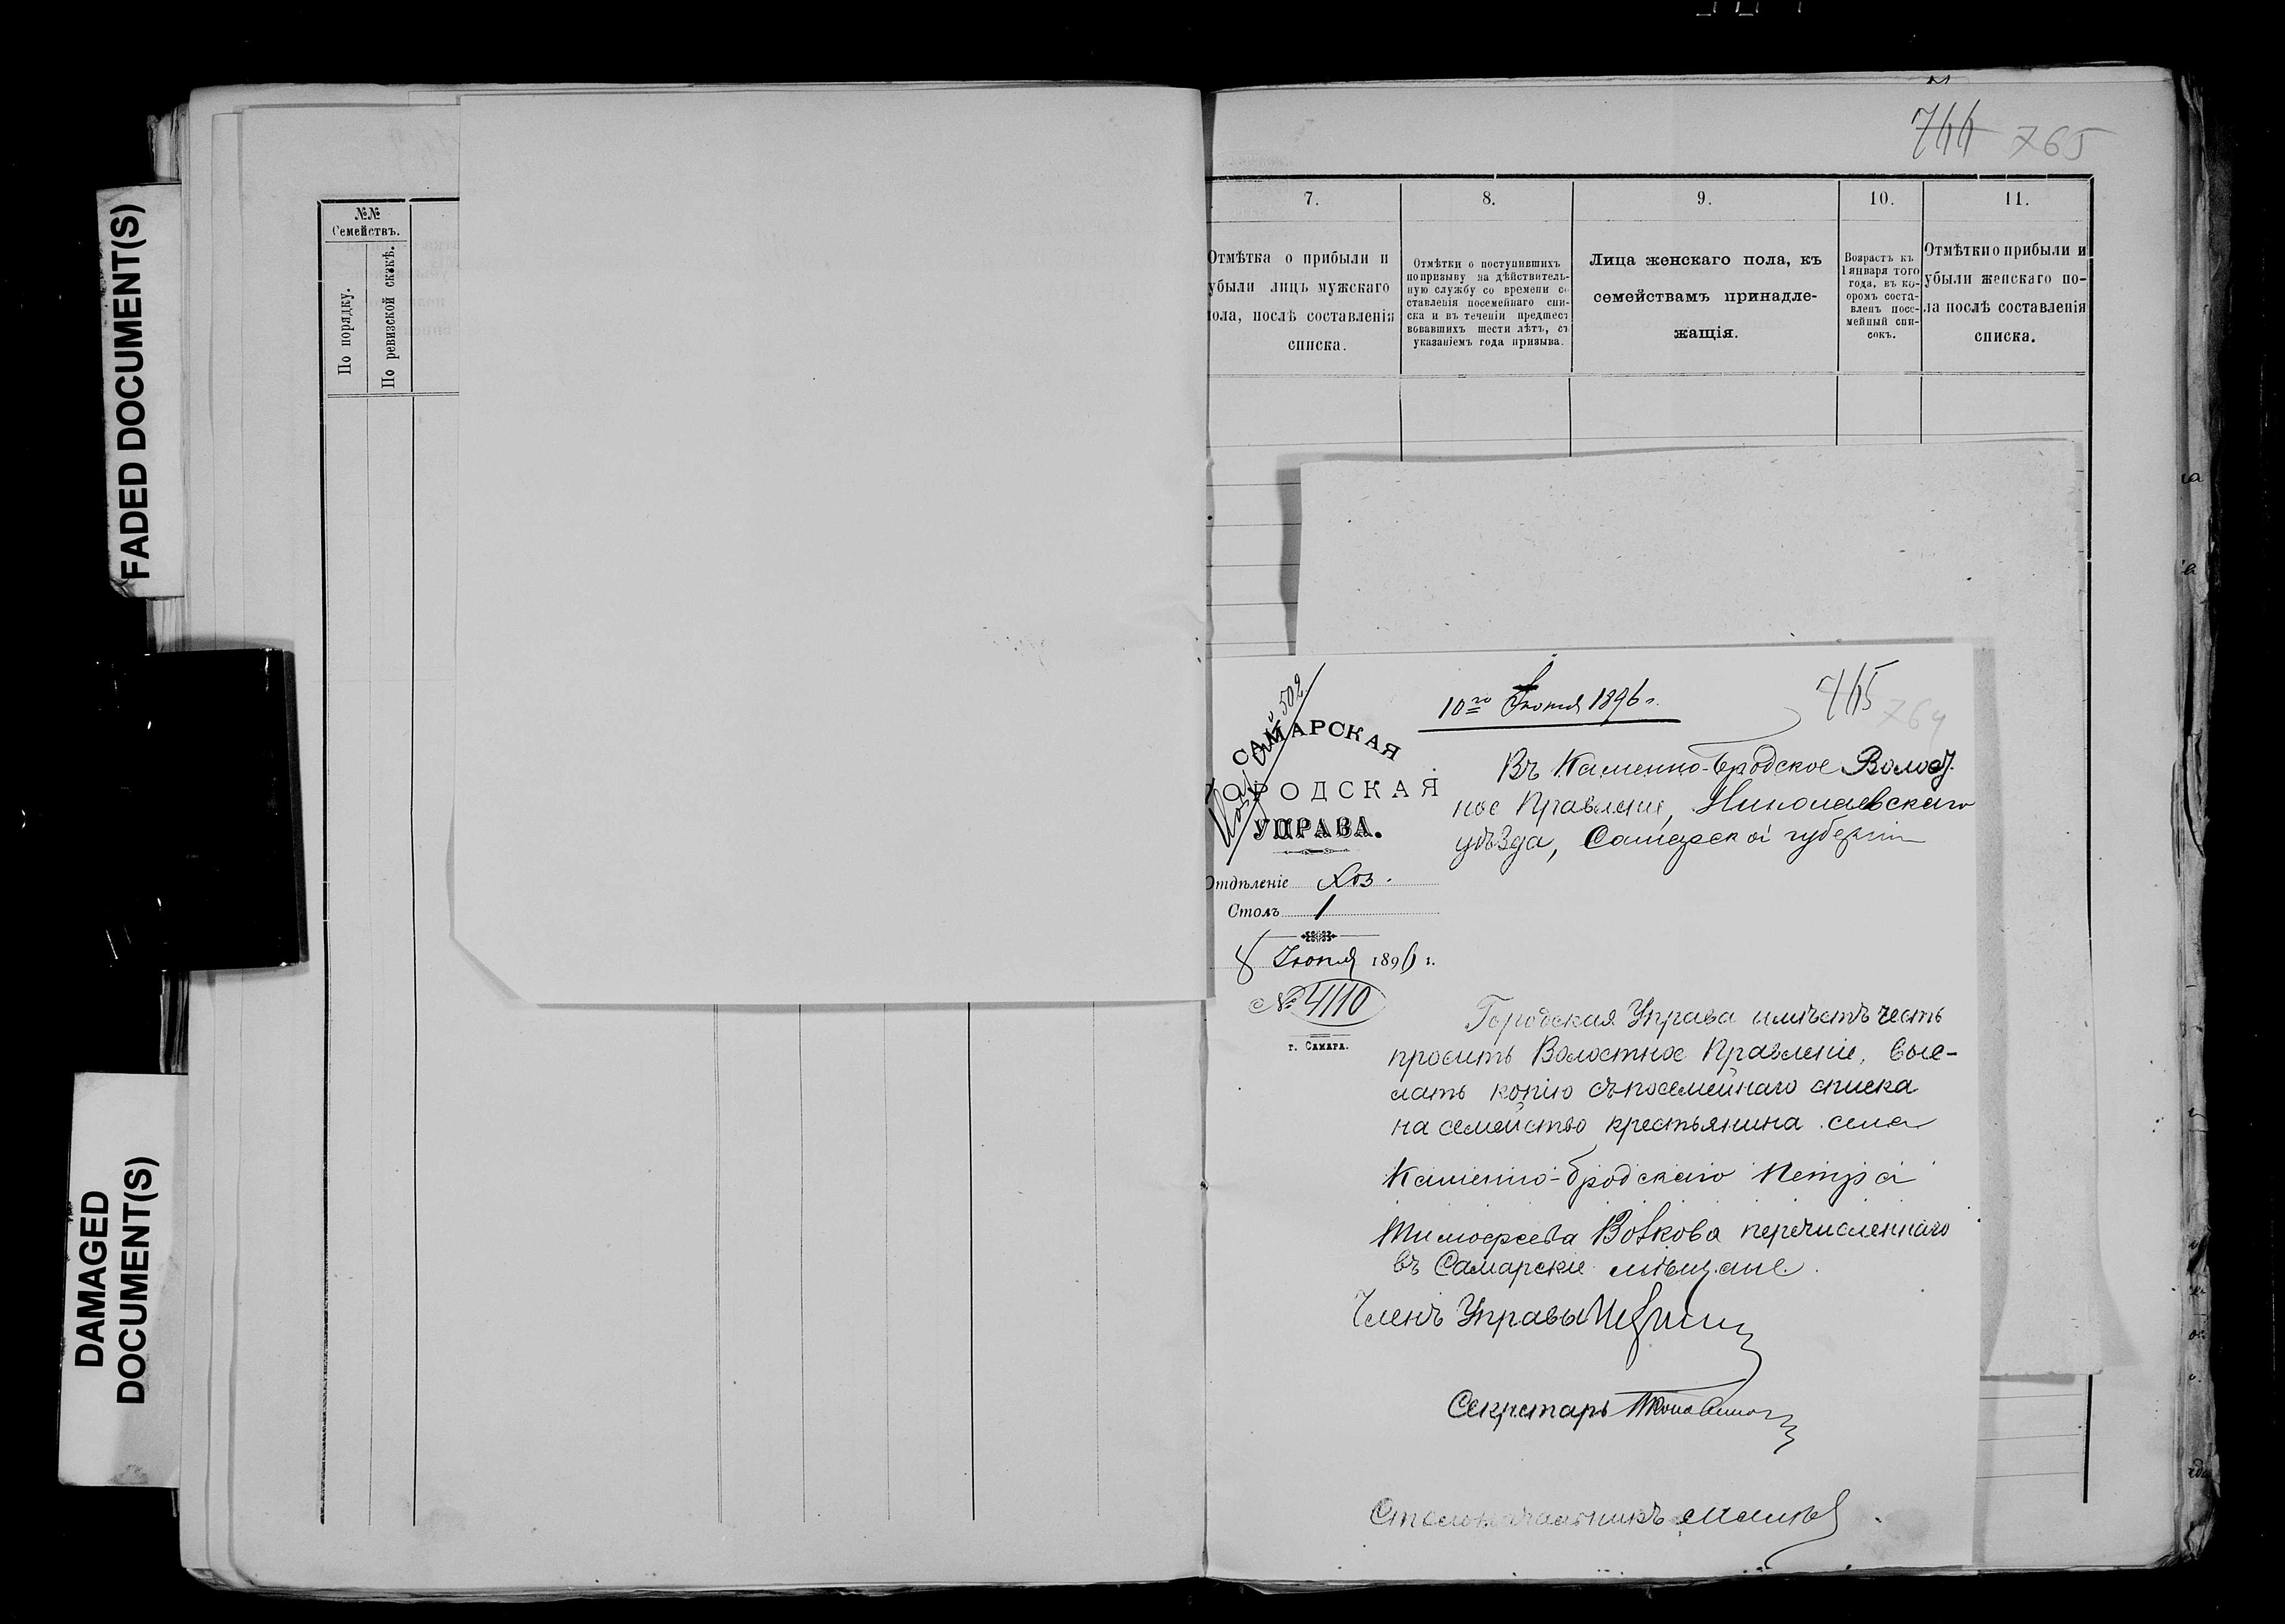 FADED DOCUMENT(S)
DAMAGED
DOCUMENT(S)
№№
Семействъ.
По порядку.
По ревизской сказкѣ.
744 765
7.
8.
9.
10.
11.
Отмѣтка о прибыли и
убыли лицъ мужскаго
пола, послѣ составленія
списка.
Отмѣтки о поступившихъ
по призыву на дѣйствитель-
ную службу со времени со
ставленія посемейнаго спи-
ска и въ теченіи предшест
вовавшихъ шести лѣтъ, съ
указаніемъ года призыва.
Лица женскаго пола, къ
семействамъ принадле-
жащія.
Возрастъ къ
1 января того
года, въ ко-
оромъ соста-
вленъ посе-
мейный спи-
сокъ.
Отмѣтки о прибыли и
убыли женскаго по-
ла послѣ составленія
списка.
502
10го Іюня 1896 г.
745 764
САМАРСКАЯ
ГОРОДСКАЯ
УПРАВА.
Отдѣленіе Хоз.
Столъ 1
8 Іюня 1896 г.
№ 4110
г. САМАРА.
Въ Каменно-Бродское Волост.
ное Правленіе, Николаевскаго
уѣзда, Самарской губерніи
Городская Управа имѣетъ честь
просить Волостное Правленіе, выс-
лать копію съ посемейнаго списка
на семейство крестьянина села
Каменно-бродскаго Петра
Тимофеева Вовкова перечисленнаго
въ Самарскіе мѣщане.
Членъ Управы
Секретарь
Столоначальникъ